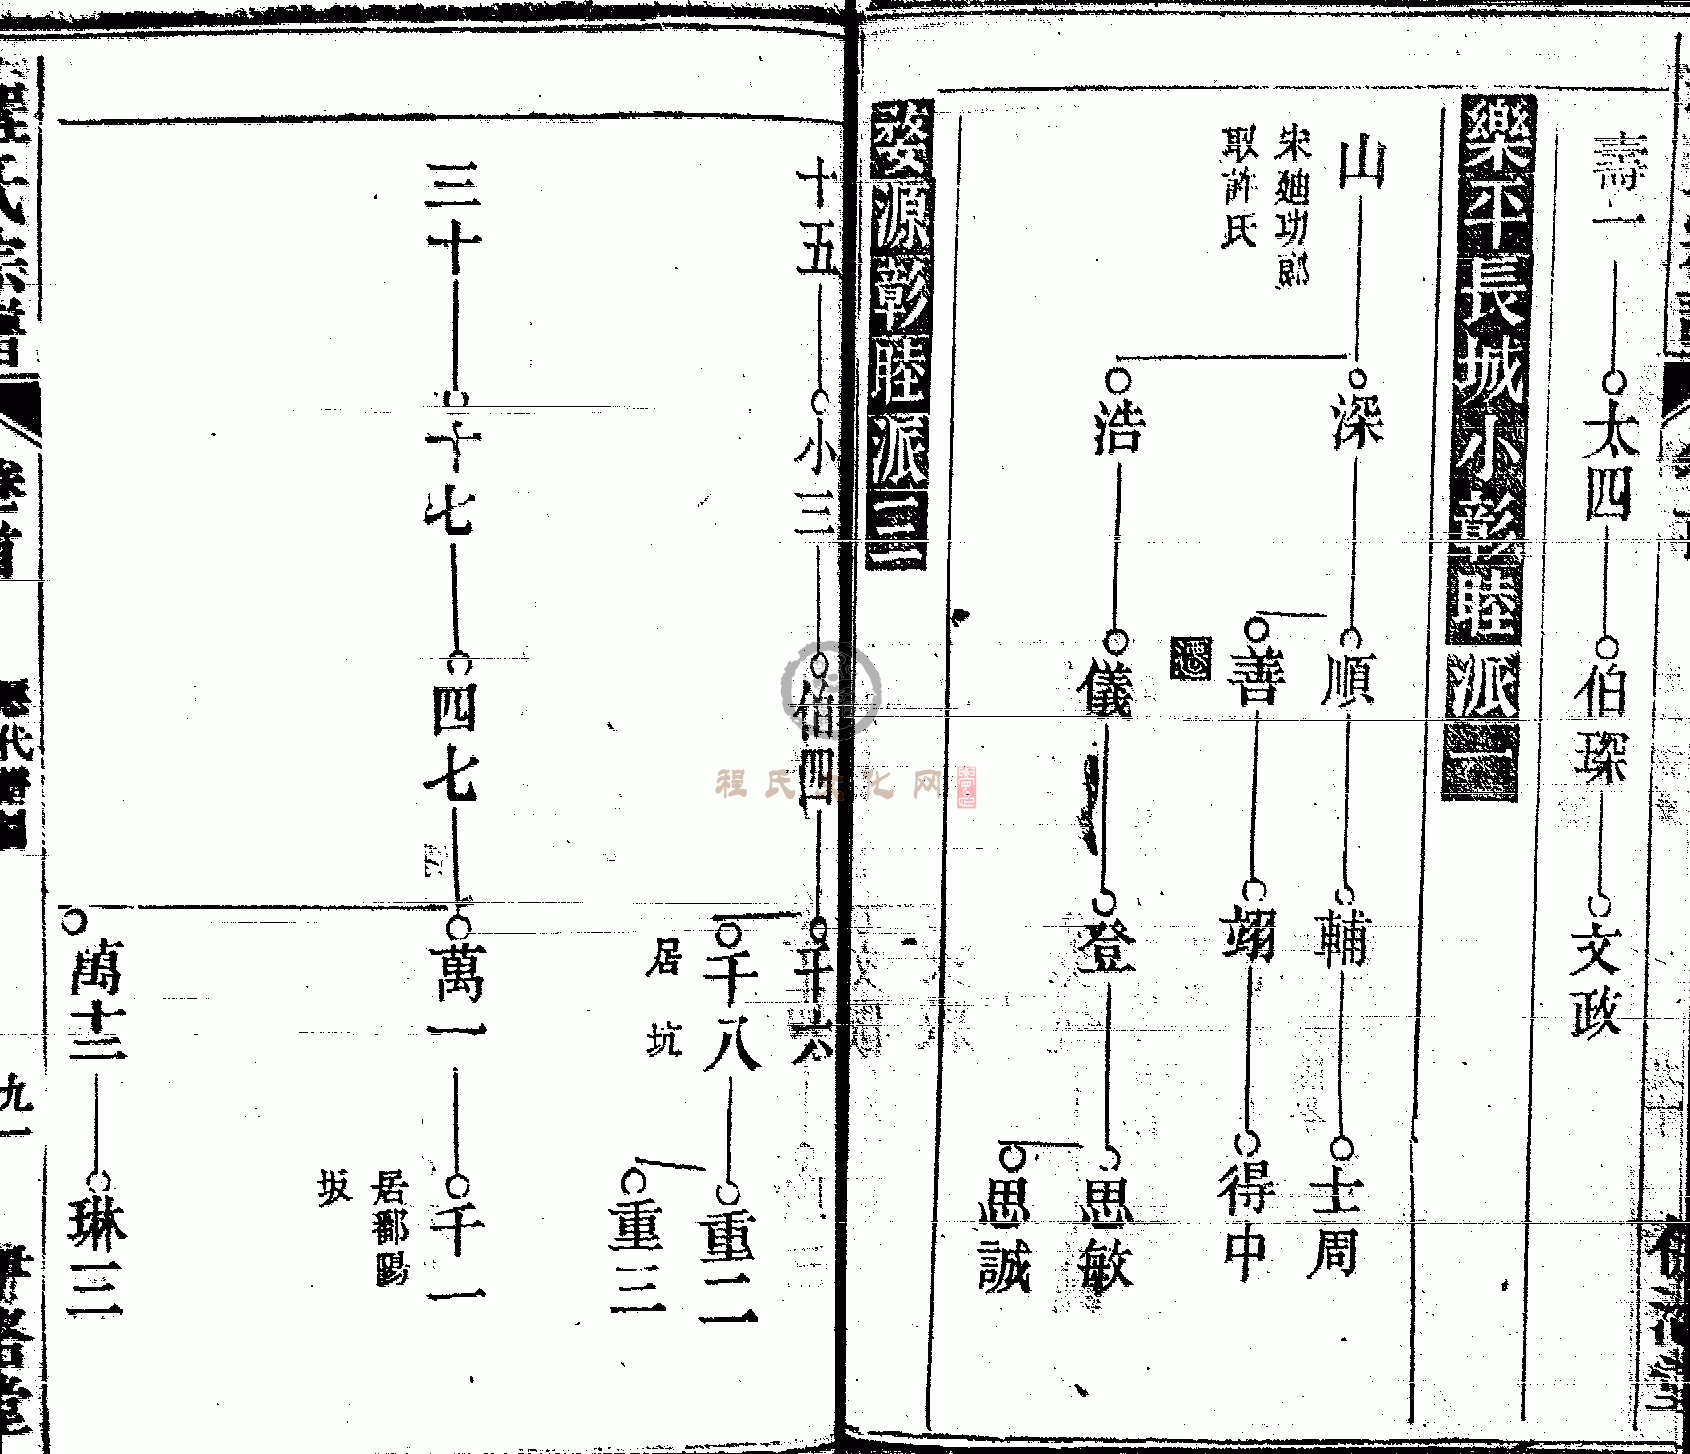 壽一
太四
伯琛
文政
樂平長城小彰睦派二
山
宋迪功郎
取許氏
深
順
輔
士周
善
翊
得中
浩
儀
登
思敏
思誠
婺源彰睦派三
十五
小三
伯四
千六
千八
居坑
重二
重三
三十
十七
四七
萬一
千一
居鄱陽
坂
萬十三
琳三
程氏宗譜
卷首
歷代譜圖
九一
程氏文化网